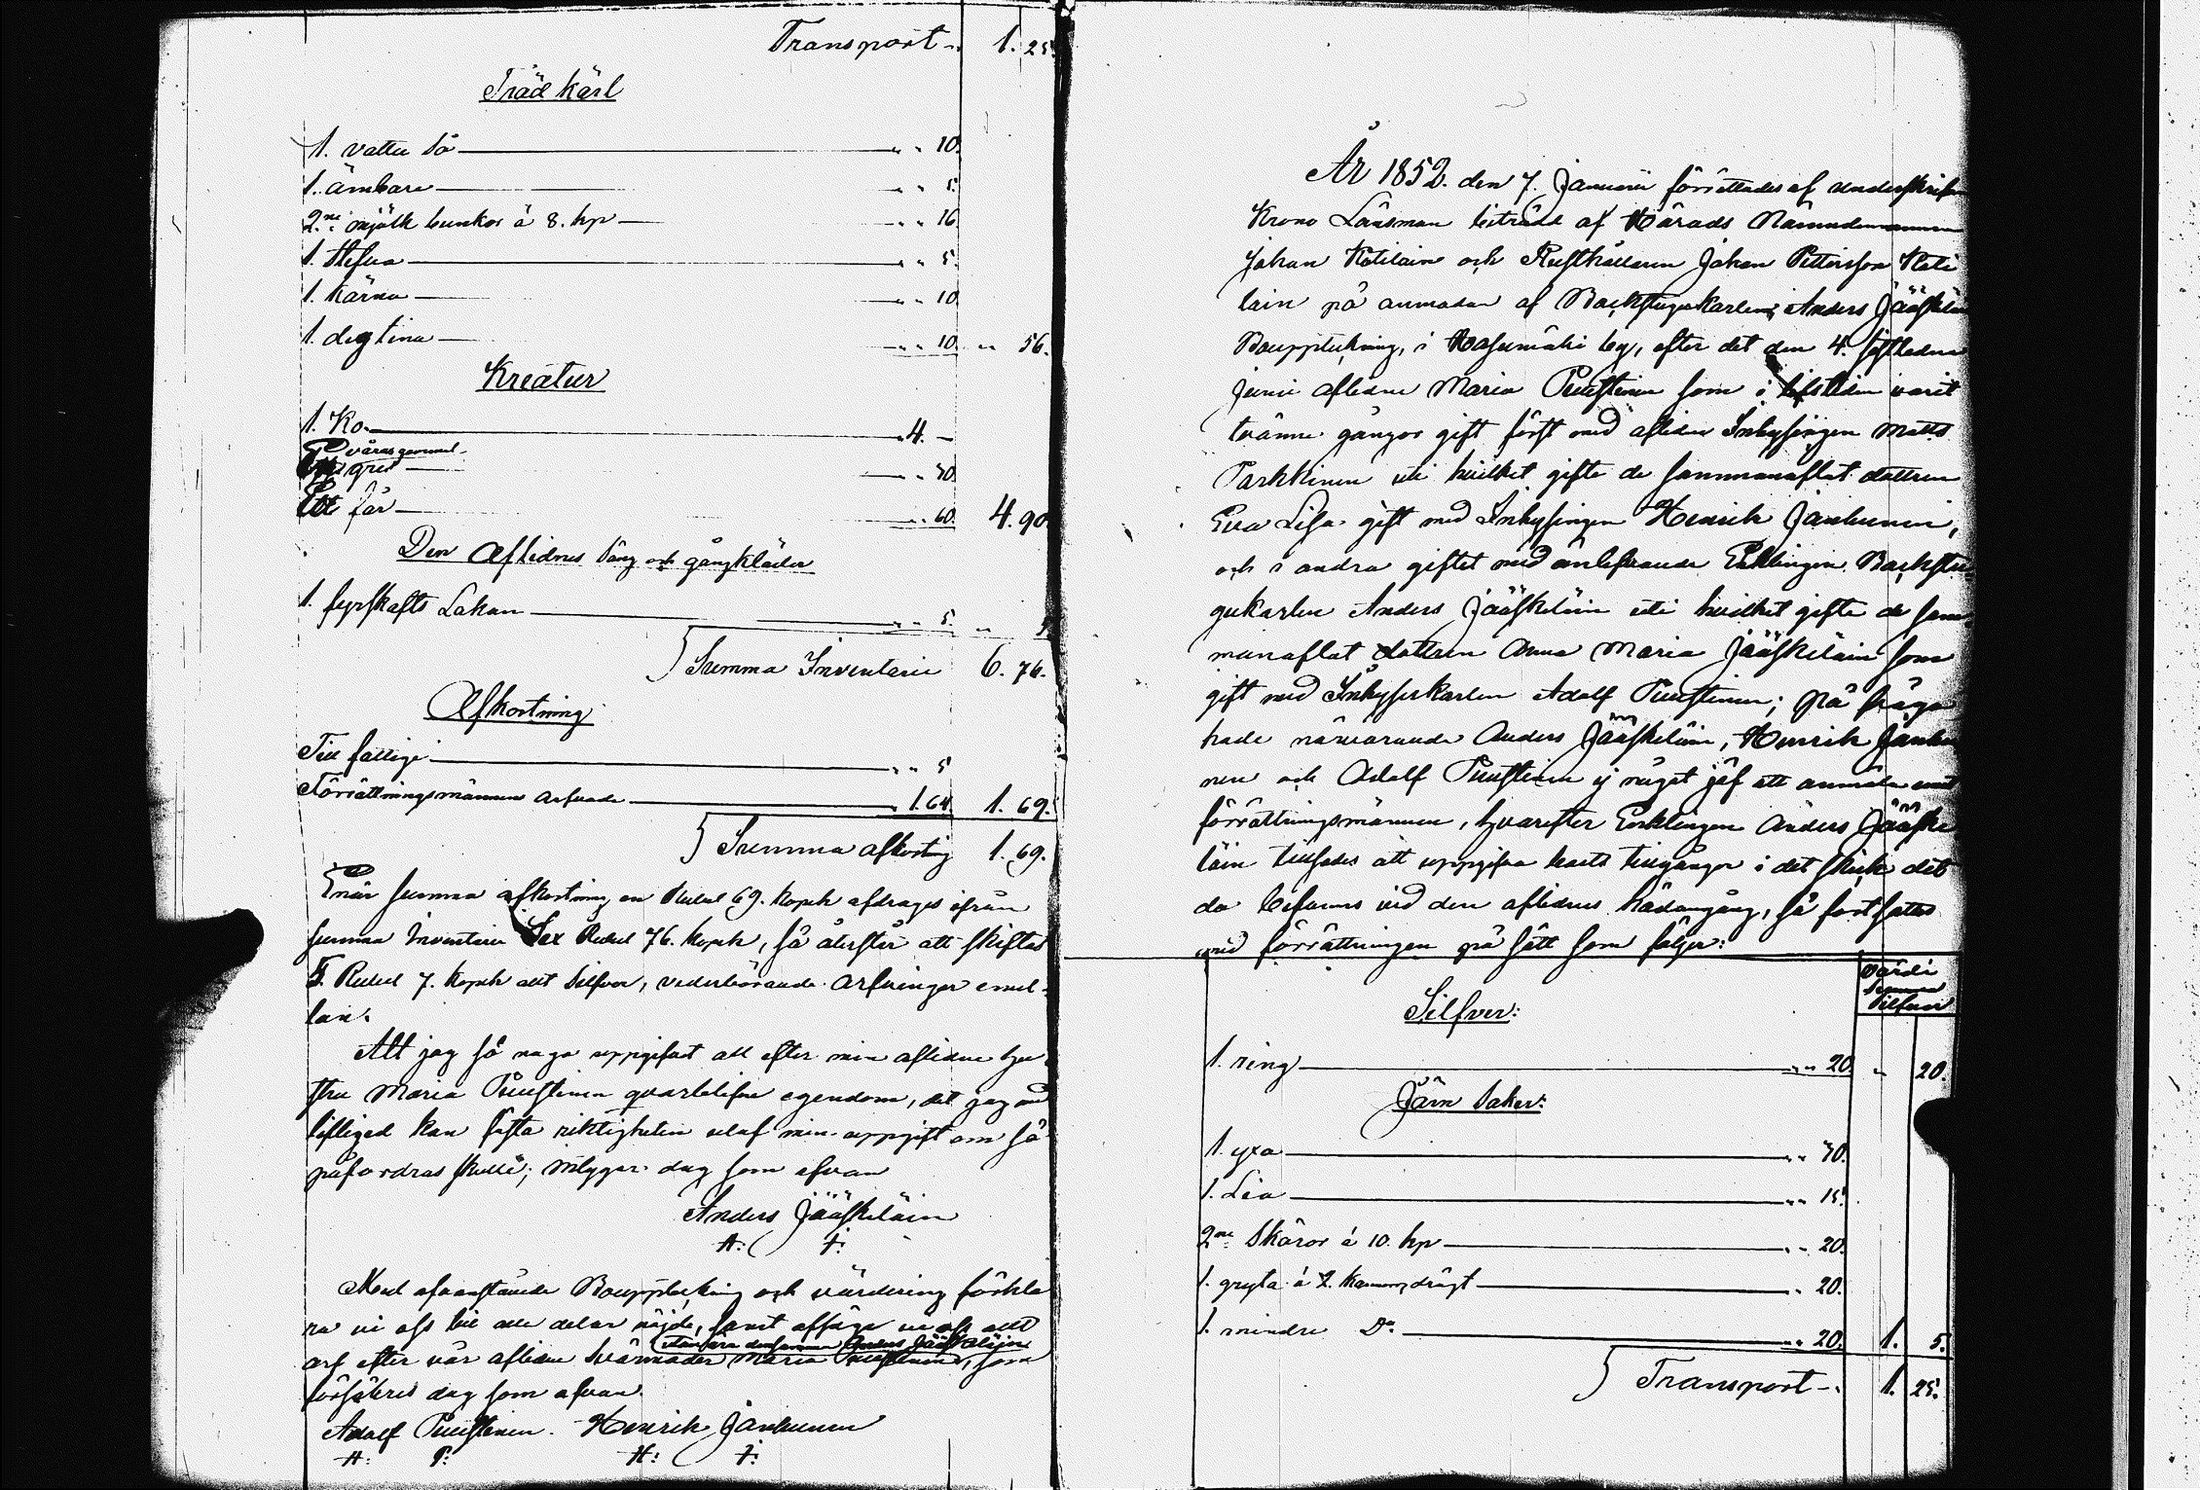 Transport „ 1. 25.
Träd kärl
1. vattu så „ „ 10.
1. ämbare „ „ 5.
2ne mjölk bunkor à 8. kp „ „ 16.
1. stefva „ „ 5.
1. kärna „ „ 10.
1. degtina „ „ 10. „ 56.
Kreatur
1. Ko. 4. –
E vårasgammal
gris „ 30
Ett får „ 60. 4. 90
Den Aflidnes säng och gångkläder
1. fyrskafts Lakan „ „ 5. „ 5.
Summa Inventarie 6. 76.
Afkortning
Till fattige „ „ 5
Förrättningsmännens arfvade 1.64. 1. 69.
Summa afkortning 1. 69.
Enär summa afkortning en Rubel 69. kopek afdrages ifrån
summa Inventarie Sex Rubel 76. kopek, så återstår att skiftas
5. Rubel 7. kopek allt silfver, vederbörande arfvingar emel-
lan.
Att jag så noga uppgifvit all efter min aflidne hu-
stru Maria Puustinen qvarblefne egendom, det jag med
lifliged kan fästa riktigheten utaf min uppgift om så
påfordras skulle; intygar dag som ofvan
Anders Jääskeläin
A: J:
Med ofvanstående Bouppteckning och värdering förkla-
ra vi oss till alla delar nöjde, samt afsäga vi oss allt
utan äro densamma Anders Jääskeläin
arf efter vår aflidne Svärmoder Maria Puustinen, som
försäkras dag som ofvan.
Adolf Puustinen. Henrik Janhunen
A: P: H: J:
År 1852. den 7. Januarii förrättades af underskrifven
Krono Länsman biträdd af Härads Nämndemannen
Johan Kötiläin och Rusthållaren Johan Pettersson Köti
läin på anmodan af Backstugukarlen Anders Jääskeläin
Bouppteckning, i Kasurmäki by, efter det den 4. sistledne
Junii aflidne Maria Puustinen som i lifstiden varit
tvänne gångor gift först med aflidne Inhysingen Matts
Parkkinen uti hvilket gifte de sammanaflat dottren
Eva Lisa gift med Inhysingen Henrik Janhunen,
och i andra giftet med änlefvande Enklingen Backstu-
gukarlen Anders Jääskeläin uti hvilket gifte de sam
manaflat dottren Anna Maria Jääskeläin som
gift med Inhyseskarlen Adolf Puustinen; på fråga
hade närvarande Anders Jääskeläin, Henrik Janhu
nen och Adolf Puustinen ej något jäf att anmäla emot
förrättningsmännen, hvarefter Enklingen Anders Jääske
läin tillsades att uppgifva boets tillgångar i det skick det
da befanns vid den aflidnes hädangång, så fortsattes
med förrättningen på sätt som följer:
Värde
Summa
Silfver
Silfver:
1. ring „ „ 20 „ 20.
Järn saker:
1. yxa „ „ 30.
1. Lia „ „ 15.
2ne skäror à 10. kp „ „ 20.
1. gryta à 2. kannordrägt „ 20.
1. mindre Do. „ „ 20. 1. 5.
Transport „ 1. 25.